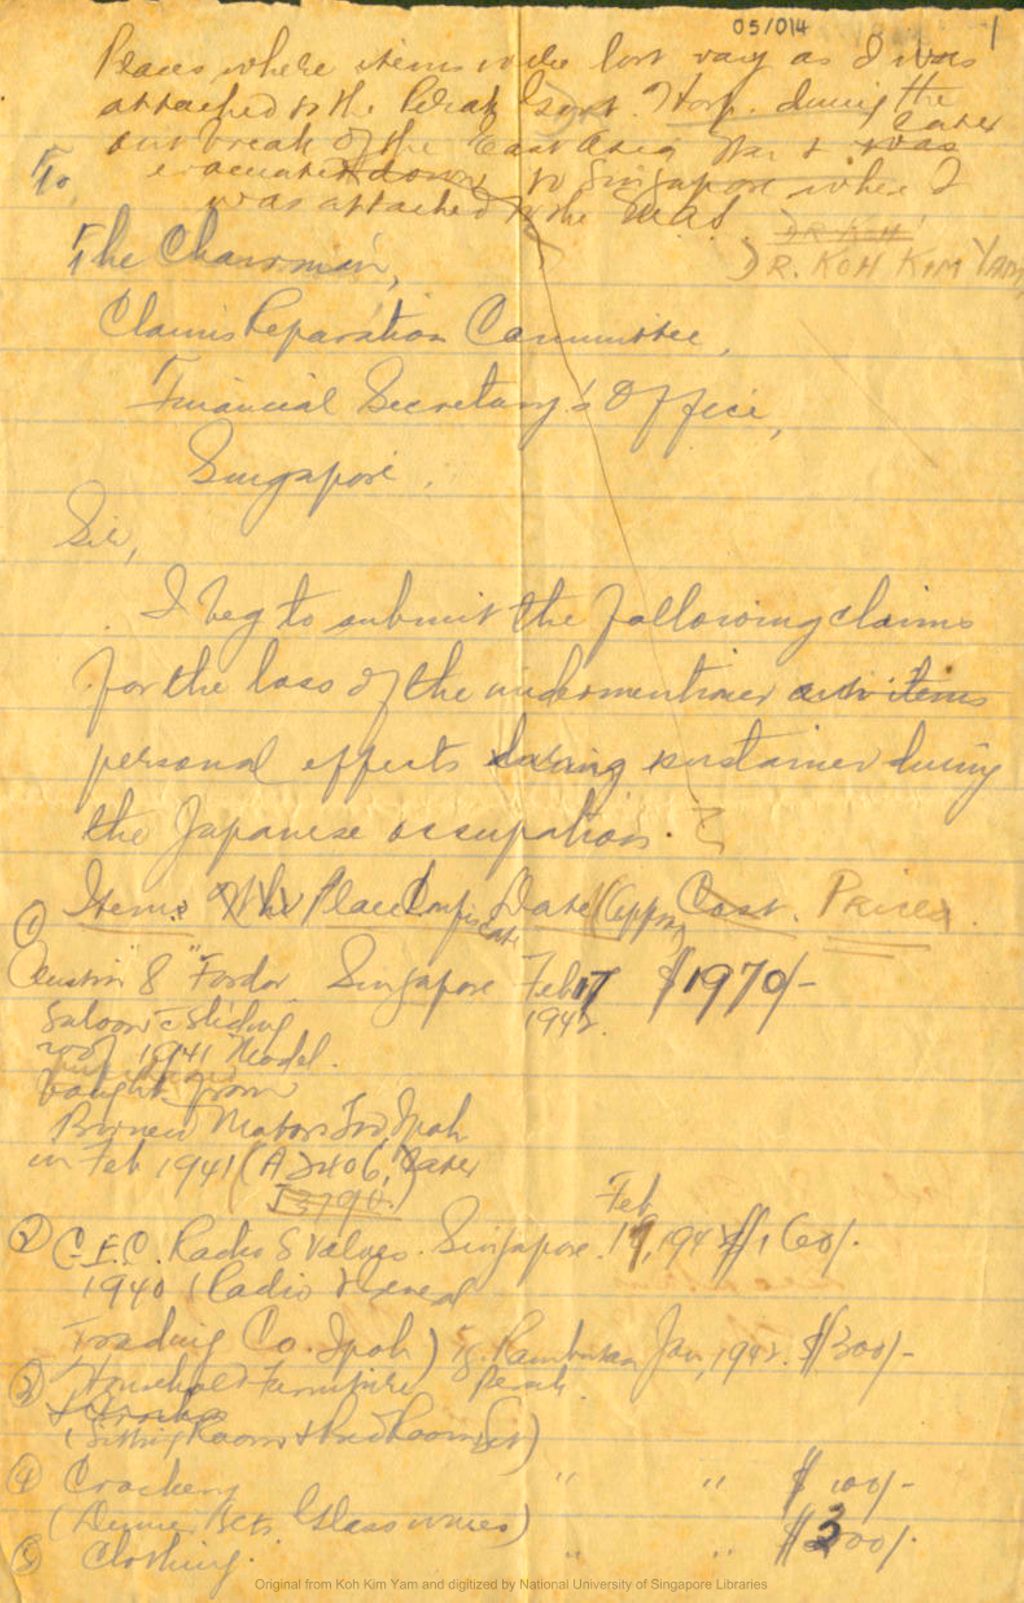 05/014
1
Places where items were lost vary as I was
attached to the Perak Govt. Hosp. during the
outbreak of the East Asia War & was later
evacuated down to Singapore where I
was attached to the MAS
To,
DR KOH
DR. KOH KIM YAM
The Chairman,
Claims Reparation Committee,
Financial Secretary's Office,
Singapore.
Sir,
I beg to submit the following claims
for the loss of the undermentioned items
personal effects during sustained during
the Japanese occupation.
Items. Place Confiscate Date (Approx) Cost. Prices.
① Austin "8" Fordor Singapore Feb 17 $1970/-
Saloon c sliding 1942.
roof 1941 Model.
bought from
Borneo Motors Ltd, Ipoh
in Feb 1941 (A 2406, later
J 3790.)
② G.E.C. Radio 5 Valves. Singapore. Feb 19, 1942 $160/-
1940 (Radio & General
Trading Co. Ipoh)
③ Household Furniture Rambutan Jan, 1942. $300/-
Perak.
(Sitting Room & Bedroom Set)
④ Crockery " " $100/-
(Dinner Sets, Glasswares)
⑤ Clothing. " " $300/-
Original from Koh Kim Yam and digitized by National University of Singapore Libraries